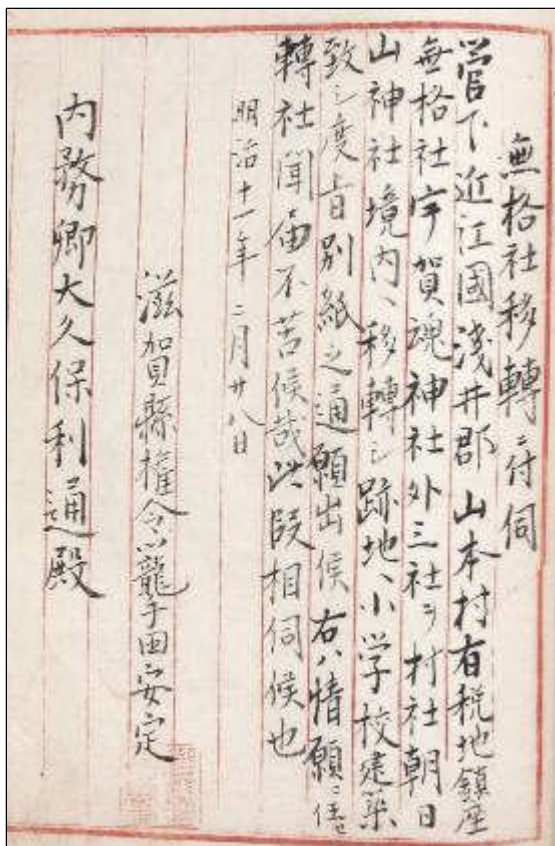 無格社移轉ニ付伺
管下近江國淺井郡山本村有税地鎮座
無格社宇賀魂神社外三社ヲ村社朝日
山神社境内ヘ移轉シ跡地ヘ小学校建築
致シ度旨別紙之通願出候右ハ情願ニ任セ
轉社聞届不苦候哉此段相伺候也
明治十一年二月廿八日
滋賀縣權令籠手田安定
内務卿大久保利通殿